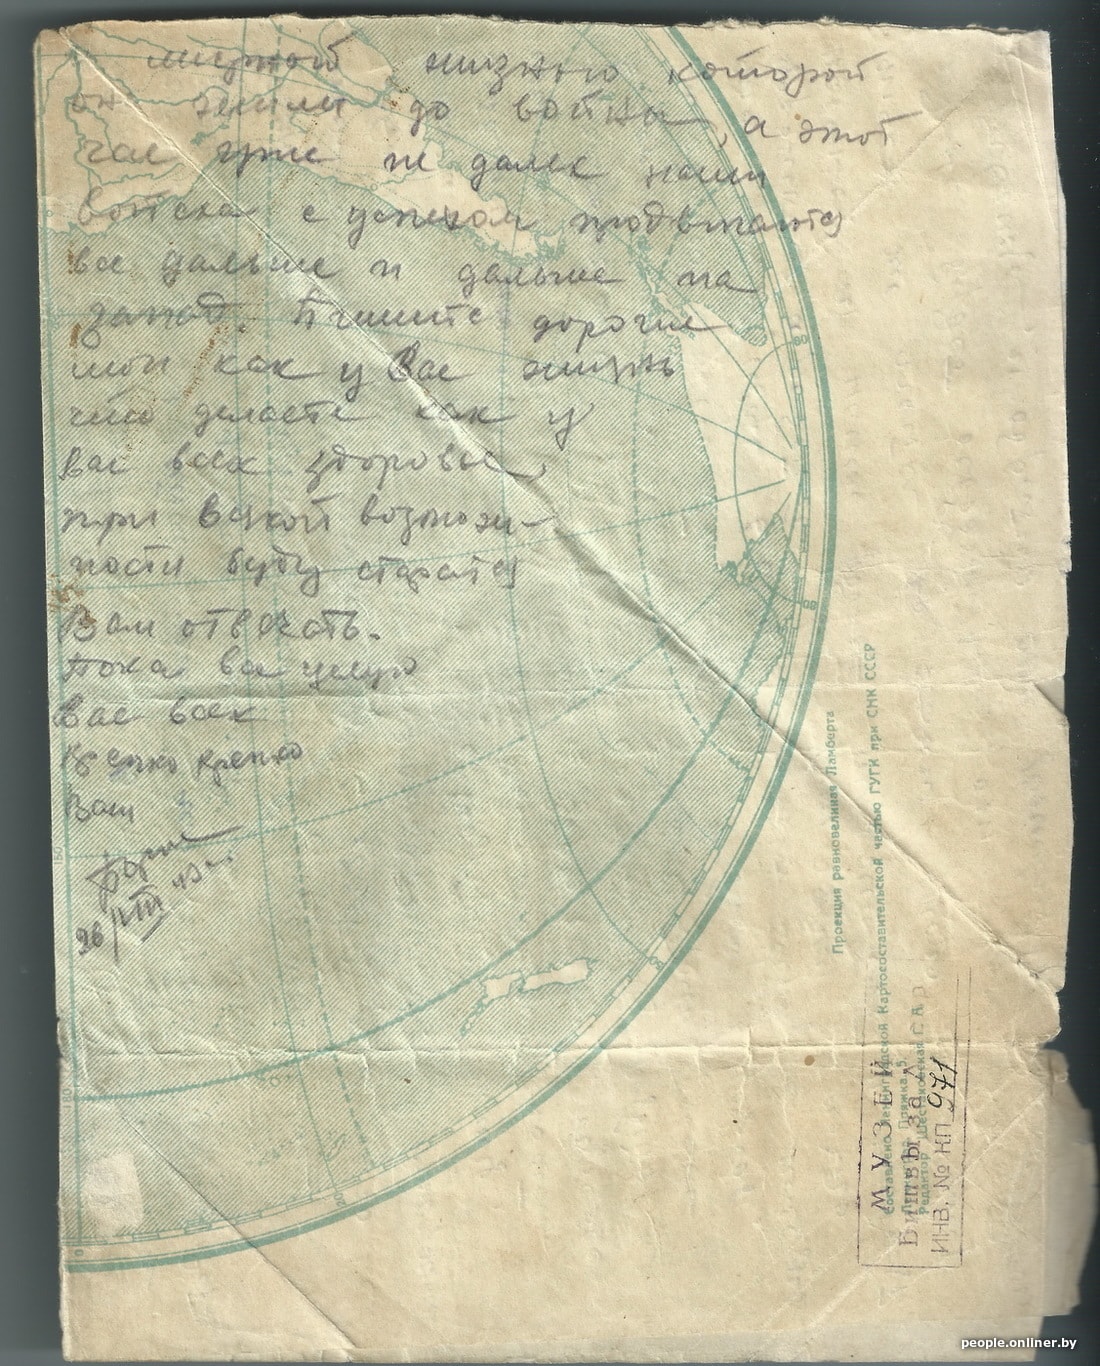 мирной жизнью которой
он жили до войны, а этот
час уже не далек наши
войска с успехом продвигаются
все дальше и дальше на
запад. Пишите дорогие
мои как у Вас жизнь
что делаете как у
вас всех здоровье,
при всякой возмож-
ности буду старатся
Вам отвечать.
Пока все целую
Вас всех
крепко крепко
Ваш
26/VIII 43 г.
Проекция равновеликая Ламберта
Составлено Ленинградской Картосоставительской частью ГУГК при СНК СССР
Пряжка, 5
Редактор Шестаковская Г. А.
МУЗЕЙ
Битвы за Л
ИНВ. № КП 971
150
180
80
60
20
0
people.onliner.by